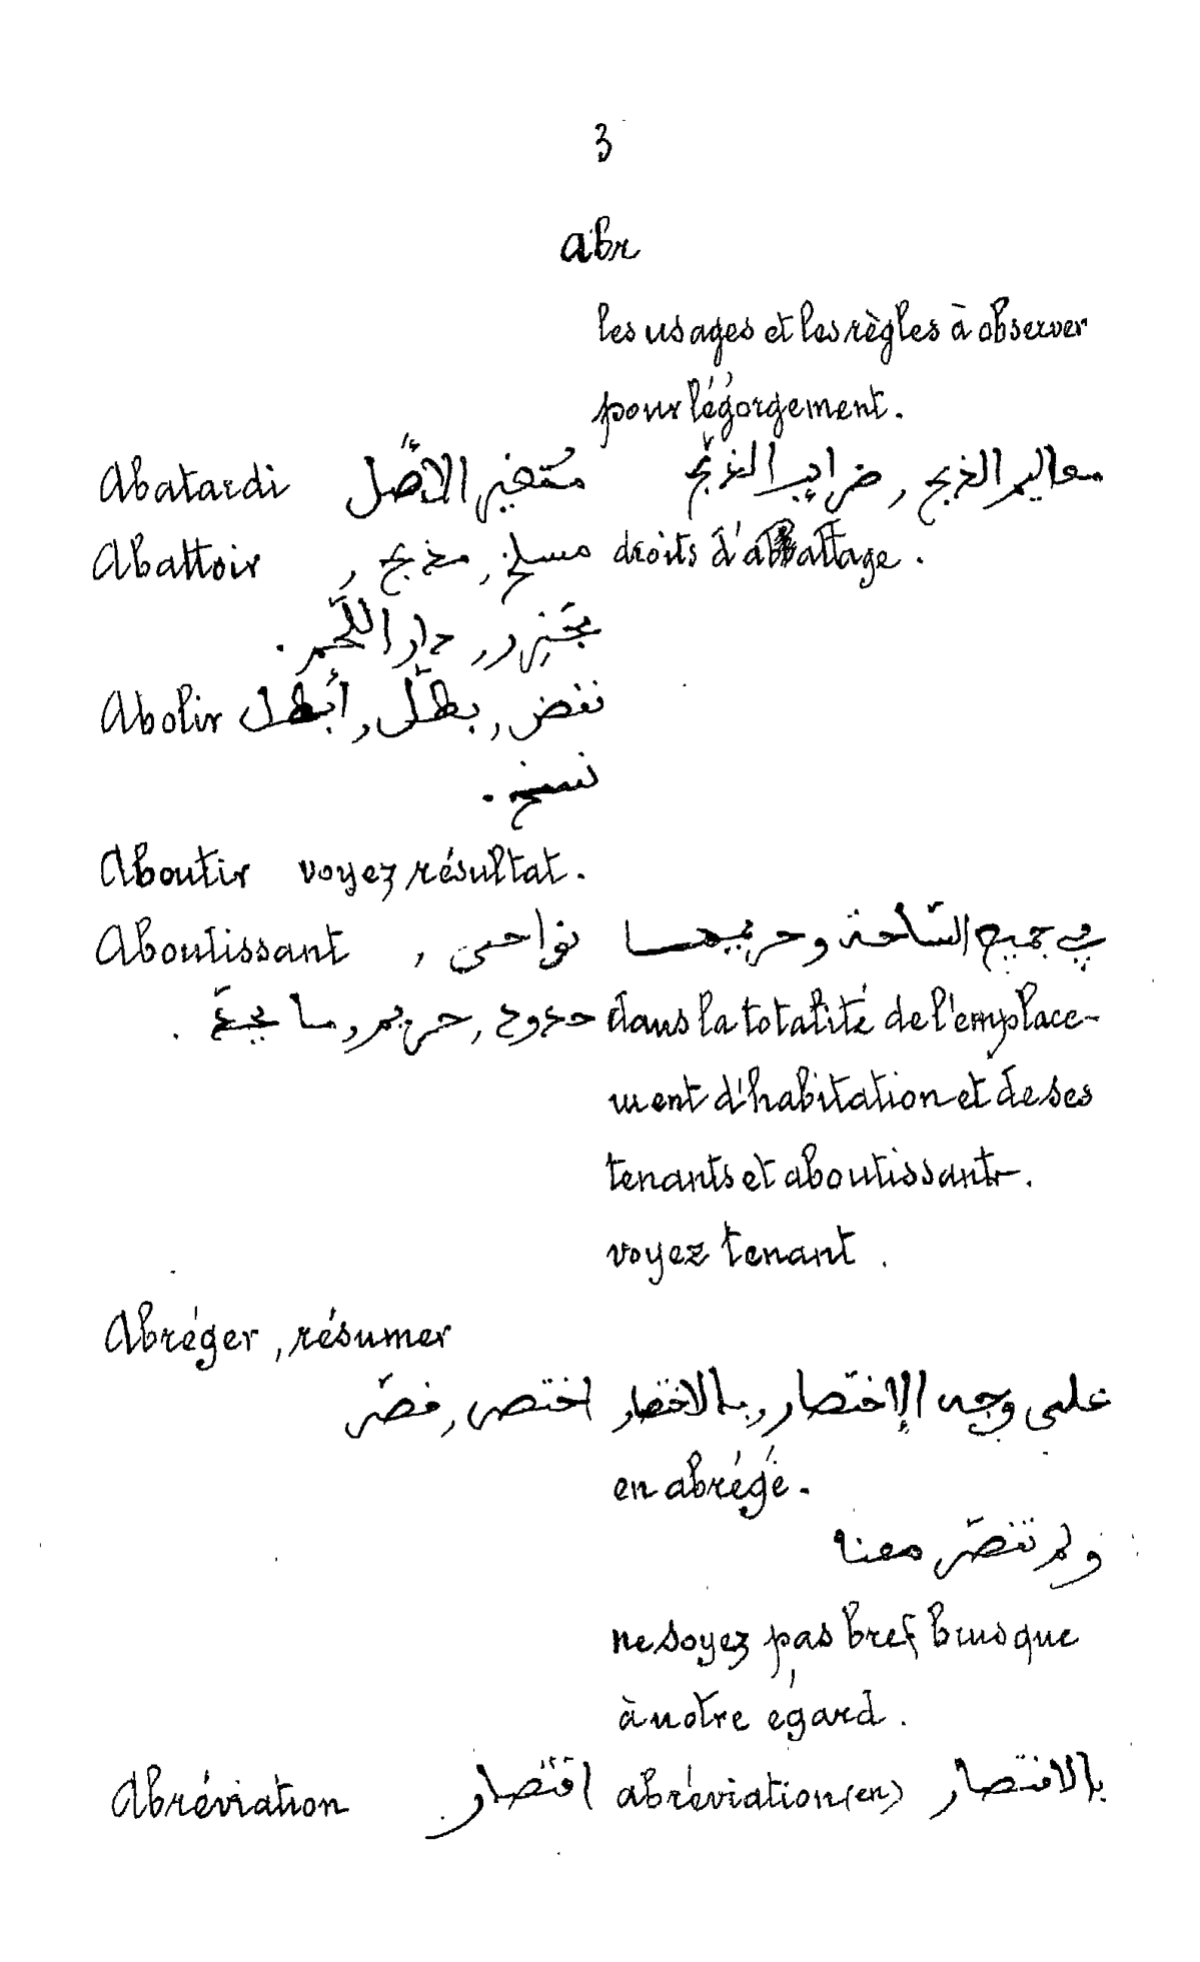 3
abr
les usages et les règles à observer
pour l'égorgement.
Abatardi مُتغير الأصل معاليم الذبح, ضرايب الذبح
Abattoir مسلخ, مذبح, droits d'abattage.
مجَزِر, دار اللّحم.
Abolir نقض, بطّل, أبطل
نسخ.
Aboutir voyez résultat.
Aboutissant نواحى, في جميع السّاحة وحريمها
حدود, حريم, dans la totalité de l'emplace-
ment d'habitation et de ses
tenants et aboutissants.
voyez tenant.
Abréger, résumer
اختصر, قصّر على وجه الإختصار, بالاختصار
en abrégé.
ولم تقصّر معنا
ne soyez pas bref brusque
à notre égard.
Abréviation اقتصار abréviation (en) بالاقتصار